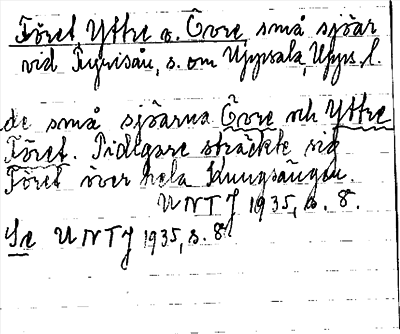 Föret Yttre o. Övre, små sjöar
vid Fyrisån, s. om Uppsala, Upps. l.
de små sjöarna Övre och Yttre
Föret. Tidigare sträckte sig
Föret över hela Kungsängen.
UNTJ 1935, s. 8.
Se UNTJ 1935, s. 8